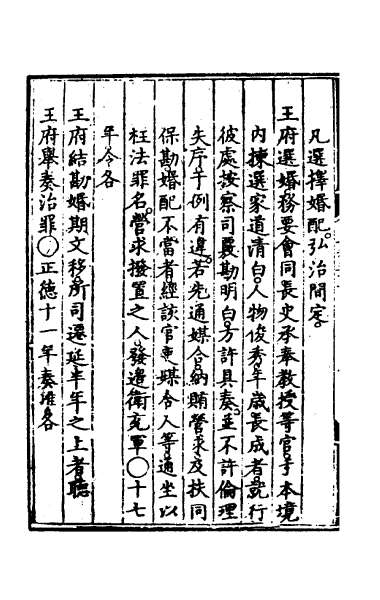 凡選擇婚配。弘治間定。
王府選婚務要會同長史承奉教授等官于本境
內揀選家道清白。人物俊秀。年歲長成者。就行
彼處按察司覆勘明白。方許具奏。並不許倫理
失序。于例有違。若先通媒合。納賄營求。及扶同
保勘。婚配不當者。經該官吏媒合人等。通坐以
枉法罪名。營求撥置之人。發邊衛充軍○十七
年令各
王府結勘婚期文移所司遷延半年之上者聽
王府舉奏治罪○正德十一年奏准各